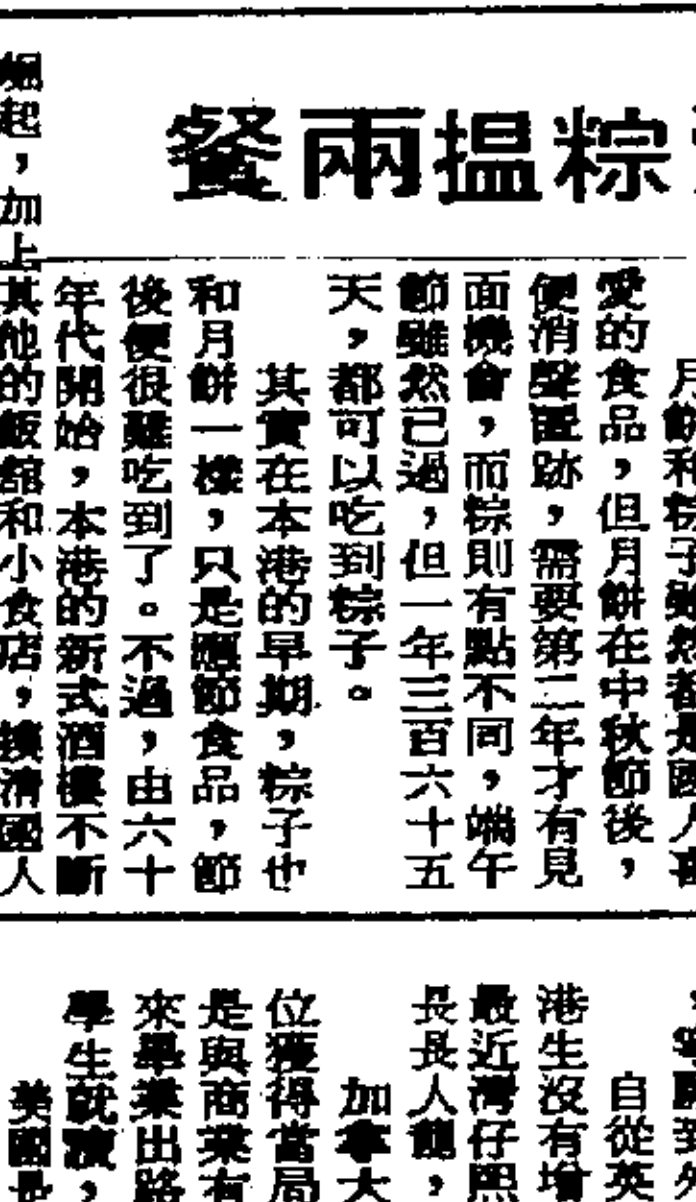 粽搵兩餐
月餅和粽子雖然都是國人喜
愛的食品，但月餅在中秋節後，
便消聲匿跡，需要第二年才有見
面機會，而粽則有點不同，端午
節雖然已過，但一年三百六十五
天，都可以吃到粽子。
其實在本港的早期，粽子也
和月餅一樣，只是應節食品，節
後便很難吃到了。不過，由六十
年代開始，本港的新式酒樓不斷
崛起，加上其他的飯館和小食店，摸清國人
自從英
港生沒有增
最近灣仔熙
長長人龍，
加拿大
位獲得當局
是與商業有
來畢業出路
學生就讀，
美國是